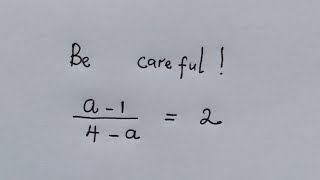 Be careful!
a - 1 / 4 - a = 2